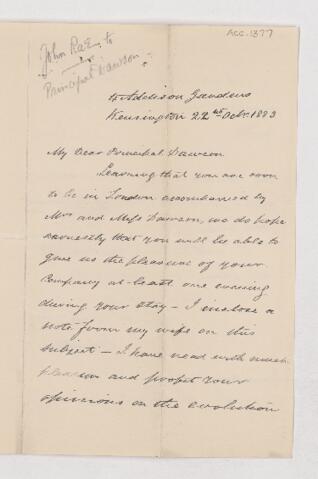 ACC. 1377
John Rae to
Principal Dawson
4 Addison Gardens
Kensington 22nd Octr. 1883
My Dear Principal Dawson
Learning that you are soon
to be in London accompanied by
Mrs and Miss Dawson, we do hope
earnestly that you will be able to
give us the pleasure of your
company at least one evening
during your stay – I enclose a
note from my wife on this
subject – I have read with much
pleasure and profit your
opinions on the evolution